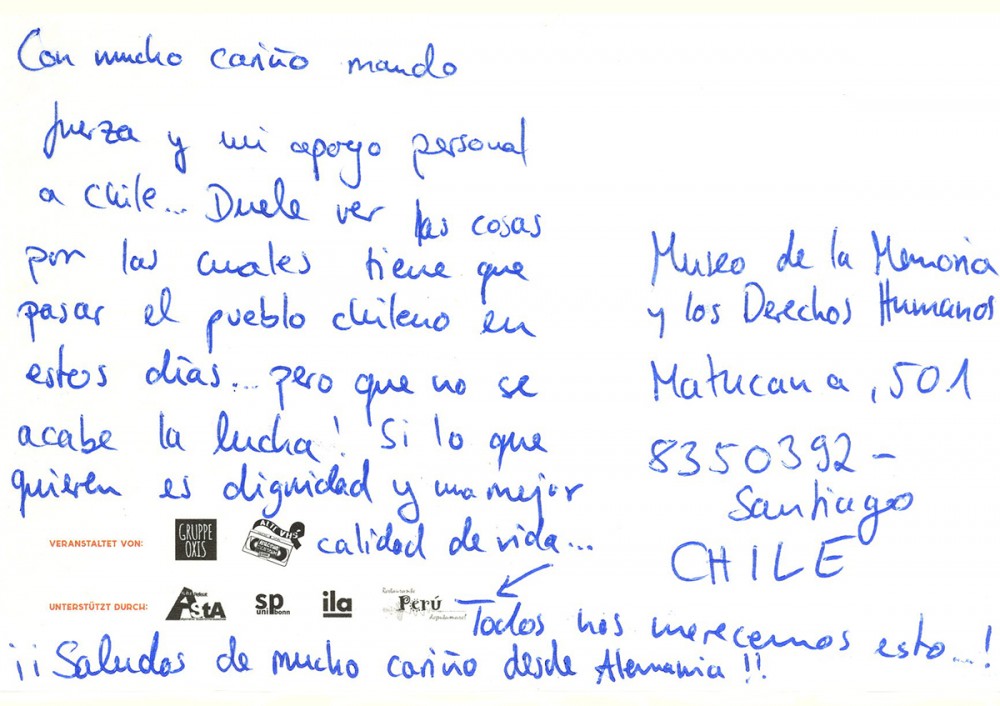 Con mucho cariño mando
fuerza y mi apoyo personal
a Chile... Duele ver las cosas
por las cuales tiene que
pasar el pueblo chileno en
estos días... pero que no se
acabe la lucha! Si lo que
quieren es dignidad y una mejor
calidad de vida...
Todos nos merecemos esto...!
¡¡Saludos de mucho cariño desde Alemania!!
Museo de la Memoria
y los Derechos Humanos
Matucana, 501
8350392 -
Santiago
CHILE
VERANSTALTET VON:
GRUPPE
OXIS
UNTERSTÜTZT DURCH:
AStA
sp
uni bonn
ila
Perú